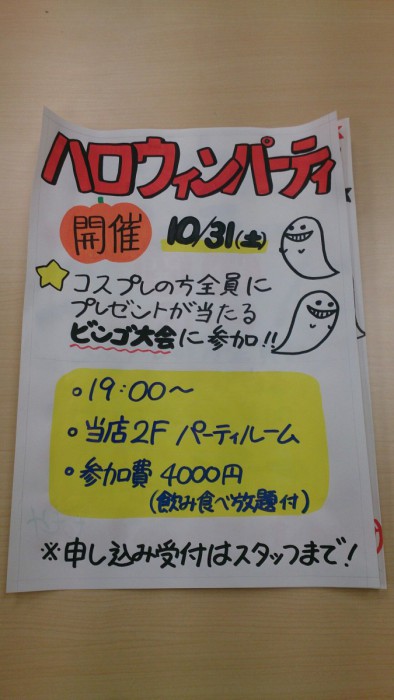 ハロウィンパーティ
開催 10/31(土)
コスプレの方全員に
プレゼントが当たる
ビンゴ大会に参加!!
・19:00〜
・当店2F パーティルーム
・参加費 4000円
(飲み食べ放題付)
※申し込み受付はスタッフまで!